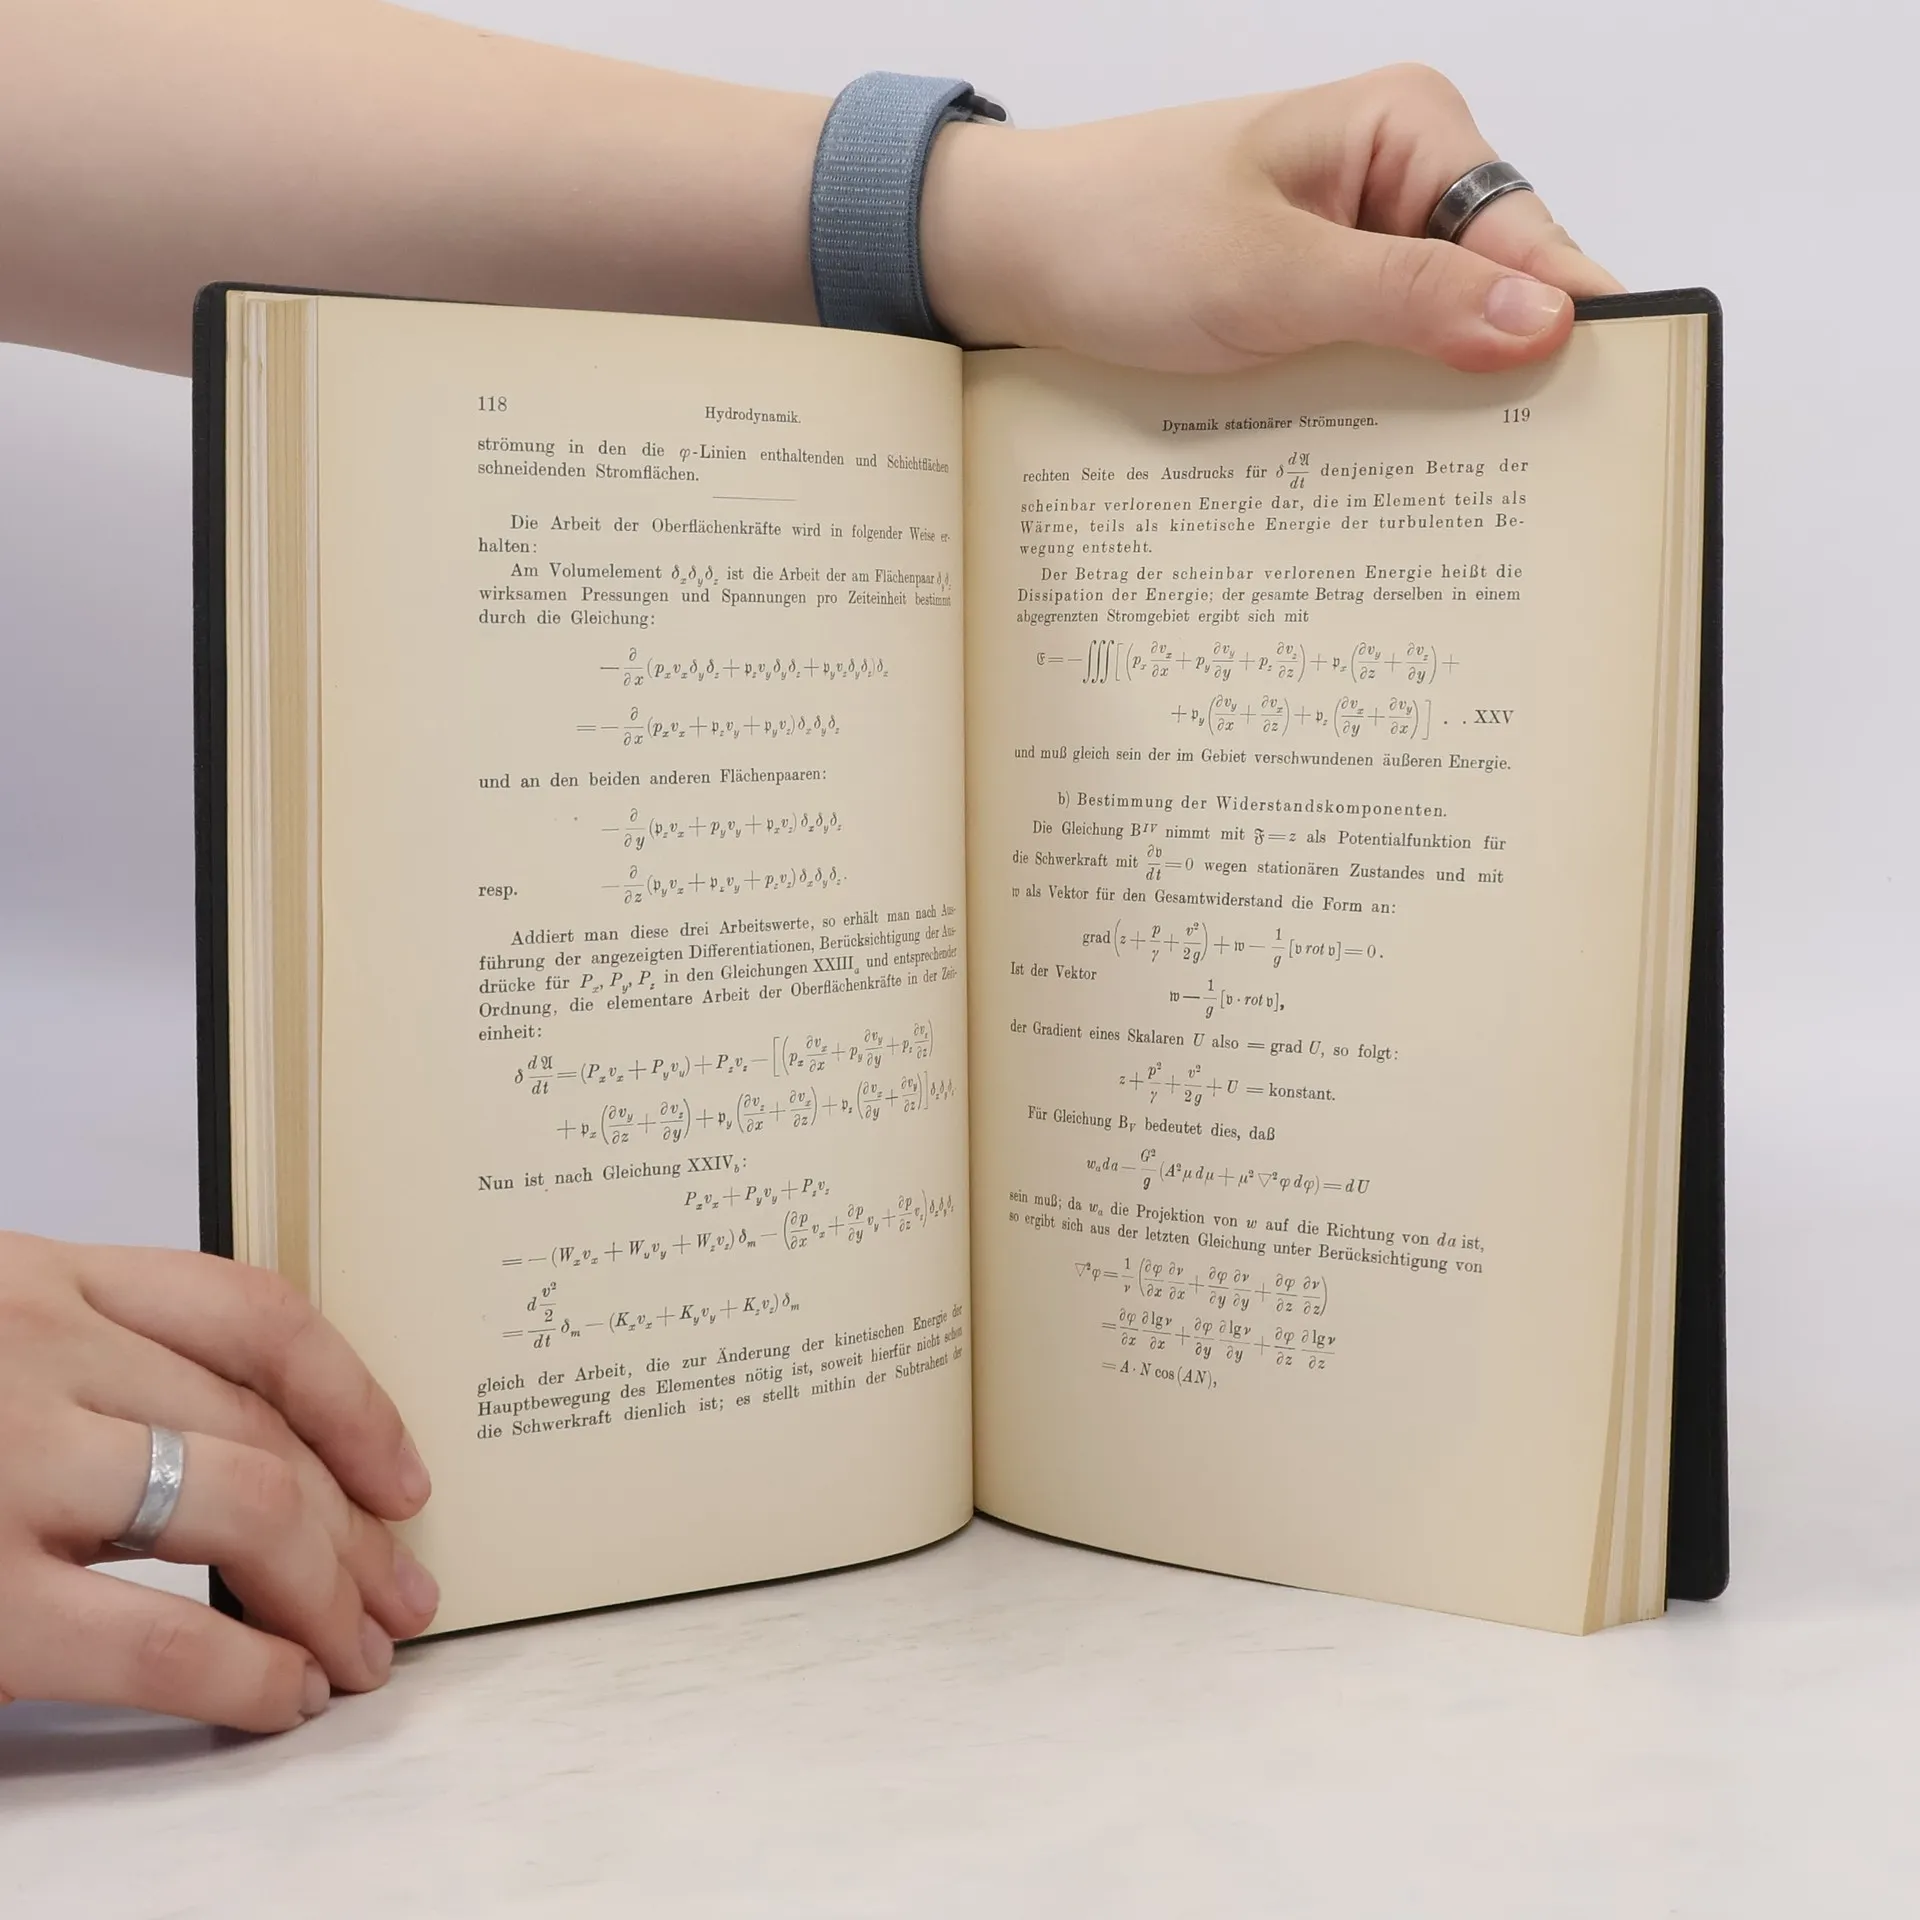 118
Hydrodynamik.
strömung in den die φ-Linien enthaltenden und Schichtflächen
schneidenden Stromflächen.
Die Arbeit der Oberflächenkräfte wird in folgender Weise er-
halten:
Am Volumelement δ_xδ_yδ_z ist die Arbeit der am Flächenpaar δ_yδ_z
wirksamen Pressungen und Spannungen pro Zeiteinheit bestimmt
durch die Gleichung:
−∂/∂x (p_xv_xδ_yδ_z + 𝔭_zv_yδ_yδ_z + 𝔭_yv_zδ_yδ_z)δ_x
= −∂/∂x (p_xv_x + 𝔭_zv_y + 𝔭_yv_z)δ_xδ_yδ_z
und an den beiden anderen Flächenpaaren:
−∂/∂y (𝔭_zv_x + p_yv_y + 𝔭_xv_z) δ_xδ_yδ_z
resp. −∂/∂z (𝔭_yv_x + 𝔭_xv_y + p_zv_z) δ_xδ_yδ_z.
Addiert man diese drei Arbeitswerte, so erhält man nach Aus-
führung der angezeigten Differentiationen, Berücksichtigung der Aus-
drücke für P_x, P_y, P_z in den Gleichungen XXIII_a und entsprechender
Ordnung, die elementare Arbeit der Oberflächenkräfte in der Zeit-
einheit:
δ d𝔄/dt = (P_xv_x + P_yv_y) + P_zv_z − [(p_x ∂v_x/∂x + p_y ∂v_y/∂y + p_z ∂v_z/∂z)
+ 𝔭_x (∂v_y/∂z + ∂v_z/∂y) + 𝔭_y (∂v_z/∂x + ∂v_x/∂z) + 𝔭_z (∂v_x/∂y + ∂v_y/∂z)] δ_xδ_yδ_z.
Nun ist nach Gleichung XXIV_b:
P_xv_x + P_yv_y + P_zv_z
= −(W_xv_x + W_yv_y + W_zv_z) δ_m − (∂p/∂x v_x + ∂p/∂y v_y + ∂p/∂z v_z) δ_xδ_yδ_z
= d v²/2 / dt δ_m − (K_xv_x + K_yv_y + K_zv_z) δ_m
gleich der Arbeit, die zur Änderung der kinetischen Energie der
Hauptbewegung des Elementes nötig ist, soweit hierfür nicht schon
die Schwerkraft dienlich ist; es stellt mithin der Subtrahent der
Dynamik stationärer Strömungen. 119
rechten Seite des Ausdrucks für δ d𝔄/dt denjenigen Betrag der
scheinbar verlorenen Energie dar, die im Element teils als
Wärme, teils als kinetische Energie der turbulenten Be-
wegung entsteht.
Der Betrag der scheinbar verlorenen Energie heißt die
Dissipation der Energie; der gesamte Betrag derselben in einem
abgegrenzten Stromgebiet ergibt sich mit
𝔈 = −∭[(p_x ∂v_x/∂x + p_y ∂v_y/∂y + p_z ∂v_z/∂z) + 𝔭_x (∂v_y/∂z + ∂v_z/∂y) +
+ 𝔭_y (∂v_y/∂x + ∂v_x/∂z) + 𝔭_z (∂v_x/∂y + ∂v_y/∂x)] . . XXV
und muß gleich sein der im Gebiet verschwundenen äußeren Energie.
b) Bestimmung der Widerstandskomponenten.
Die Gleichung B^IV nimmt mit 𝔉 = z als Potentialfunktion für
die Schwerkraft mit ∂𝔳/dt = 0 wegen stationären Zustandes und mit
𝔴 als Vektor für den Gesamtwiderstand die Form an:
grad (z + p/γ + v²/2g) + 𝔴 − 1/g [𝔳 rot 𝔳] = 0.
Ist der Vektor
𝔴 − 1/g [𝔳 · rot 𝔳],
der Gradient eines Skalaren U also = grad U, so folgt:
z + p²/γ + v²/2g + U = konstant.
Für Gleichung B_V bedeutet dies, daß
w_a da − G²/g (A²μ dμ + μ² ▽²φ dφ) = dU
sein muß; da w_a die Projektion von w auf die Richtung von da ist,
so ergibt sich aus der letzten Gleichung unter Berücksichtigung von
▽²φ = 1/ν (∂φ/∂x ∂ν/∂x + ∂φ/∂y ∂ν/∂y + ∂φ/∂z ∂ν/∂z)
= ∂φ/∂x ∂lgν/∂x + ∂φ/∂y ∂lgν/∂y + ∂φ/∂z ∂lgν/∂z
= A · N cos (AN),